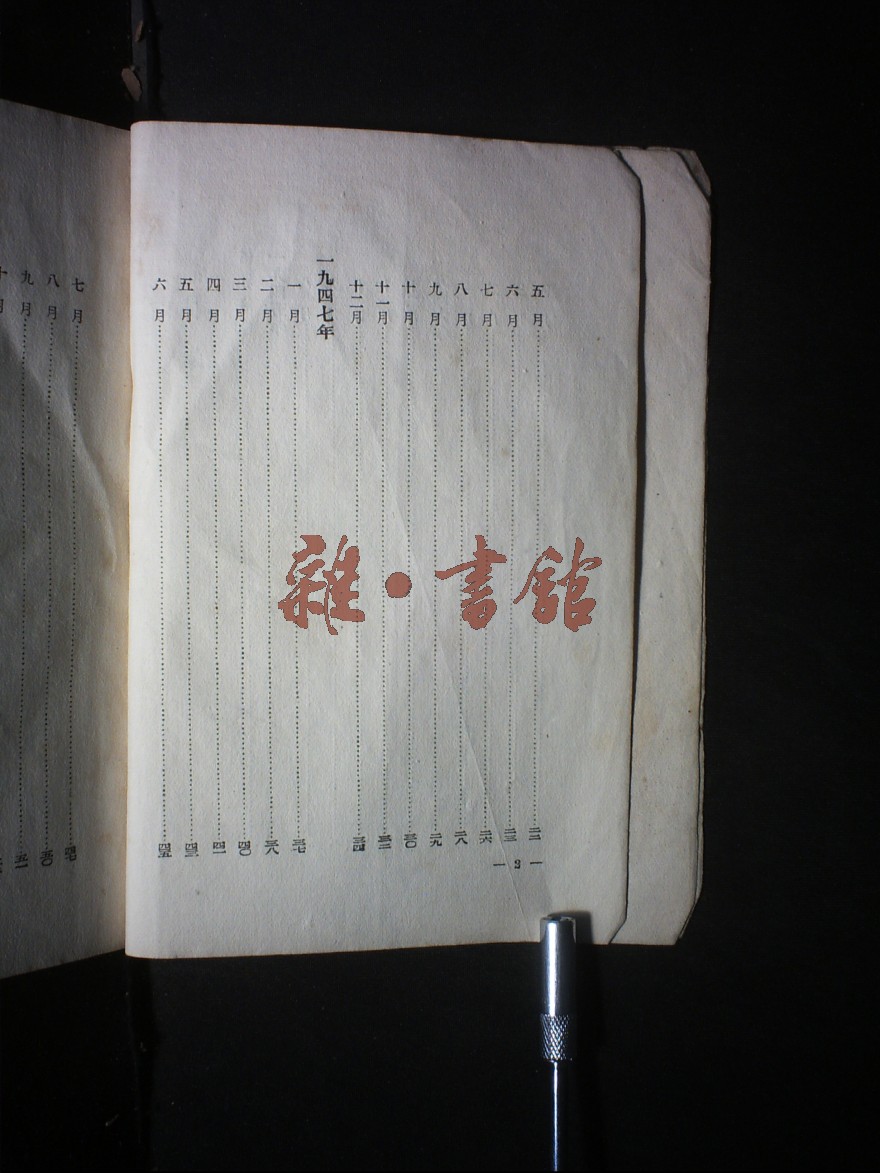 五月……二二
六月……二三
七月……二六
八月……二八
九月……二九
十月……三〇
十一月……
十二月……三四
一九四七年
一月……三七
二月……三八
三月……四〇
四月……四一
五月……四三
六月……四五
— 3 —
七月……
八月……五〇
九月……
雜·書館